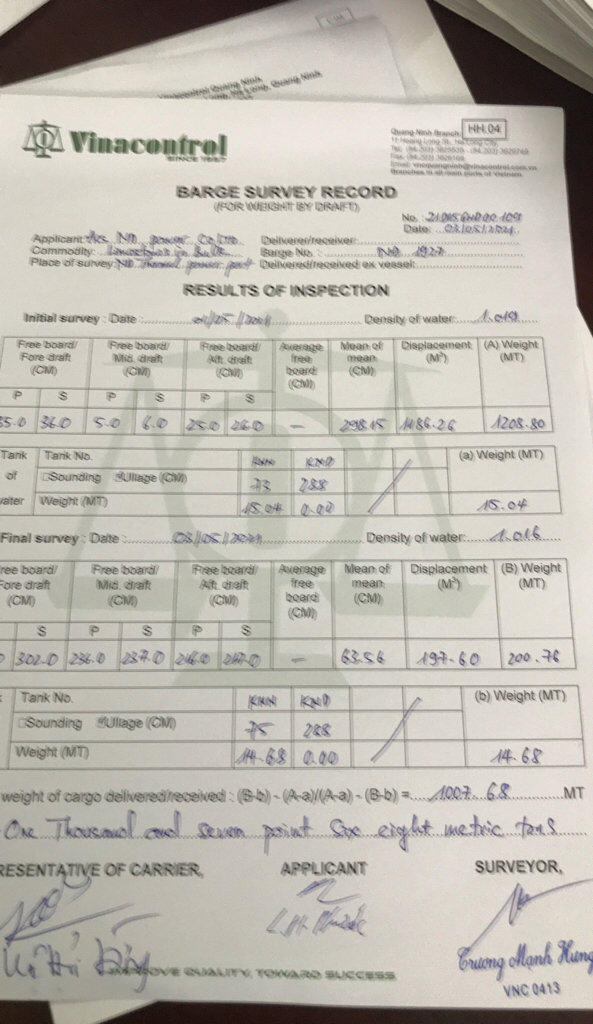 Vinacontrol Quang Ninh
Vinacontrol
SINCE 1957
Quang Ninh Branch
HH.04
11 Hoang Long St., Ha Long City
Branches in all main parts of Vietnam
BARGE SURVEY RECORD
(FOR WEIGHT BY DRAFT)
No.
Date: 03/05/2021
Applicant: power
Deliverer/receiver:
Commodity: Limestones in Bulk
Barge No. : NĐ 1927
Place of survey: NĐ Thermal power port
Delivered/received ex vessel:
RESULTS OF INSPECTION
Initial survey : Date :
Density of water: 1.019
Free board/ Fore draft (CM)
Free board/ Mid. draft (CM)
Free board/ Aft. draft (CM)
Average free board (CM)
Mean of mean (CM)
Displacement (M³)
(A) Weight (MT)
P S P S P S
35.0 36.0 5.0 6.0 25.0 26.0 — 298.15 1186.26 1208.80
Tank of water
Tank No.
KNĐ
(a) Weight (MT)
Sounding Ullage (CM) 73 288
Weight (MT) 15.04 0.00 15.04
Final survey : Date : 03/05/2021
Density of water: 1.016
ree board/ Fore draft (CM)
Free board/ Mid. draft (CM)
Free board/ Aft. draft (CM)
Average free board (CM)
Mean of mean (CM)
Displacement (M³)
(B) Weight (MT)
S P S P S
302.0 236.0 237.0 246.0 247.0 — 63.56 197.60 200.76
Tank No. KNĐ
(b) Weight (MT)
Sounding Ullage (CM) 75 288
Weight (MT) 14.68 0.00 14.68
weight of cargo delivered/received : (B-b) - (A-a)/(A-a) - (B-b) = 1007.68 MT
One Thousand and seven point six eight metric tons
RESENTATIVE OF CARRIER,
APPLICANT
SURVEYOR,
Trương Mạnh Hùng
VNC 0413
OVE QUALITY, TOWARD SUCCESS